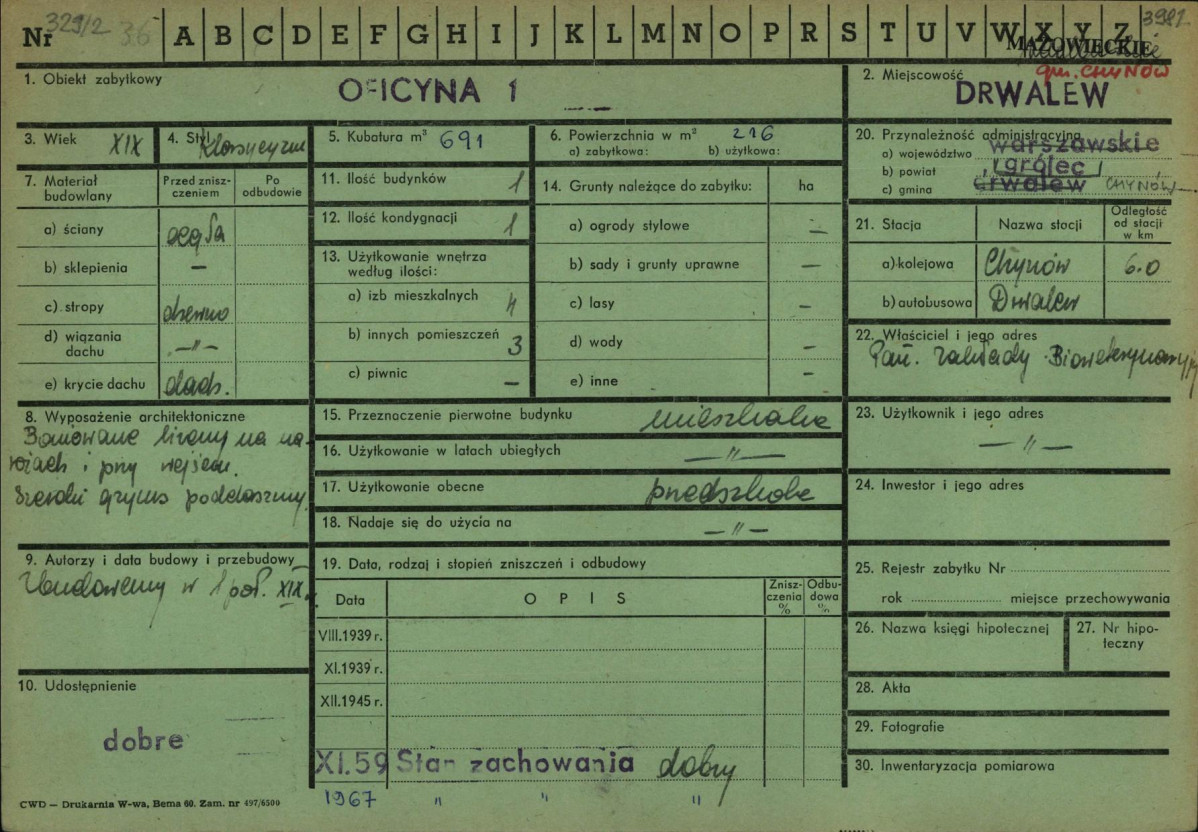 Nr 329/2 36 A B C D E F G H I J K L M N O P R S T U V W X Y Z 3981
MAZOWIECKIE
gm. CHYNÓW
1. Obiekt zabytkowy
OFICYNA 1
2. Miejscowość
DRWALEW
3. Wiek XIX
4. Styl Klasycyzm
5. Kubatura m³ 691
6. Powierzchnia w m² 216
a) zabytkowa: b) użytkowa:
7. Materiał budowlany
Przed zniszczeniem
Po odbudowie
a) ściany cegła
b) sklepienia —
c) stropy drewno
d) wiązania dachu —"—
e) krycie dachu dach.
8. Wyposażenie architektoniczne
Boniowane lizeny na na-
rożach i przy wejściu.
Szeroki gzyms poddaszowy.
9. Autorzy i data budowy i przebudowy
Zbudowany w 1 poł. XIX w.
10. Udostępnienie
dobre
11. Ilość budynków 1
12. Ilość kondygnacji 1
13. Użytkowanie wnętrza według ilości:
a) izb mieszkalnych 4
b) innych pomieszczeń 3
c) piwnic —
14. Grunty należące do zabytku: ha
a) ogrody stylowe —
b) sady i grunty uprawne —
c) lasy —
d) wody —
e) inne —
15. Przeznaczenie pierwotne budynku mieszkalne
16. Użytkowanie w latach ubiegłych —"—
17. Użytkowanie obecne przedszkole
18. Nadaje się do użycia na —"—
19. Data, rodzaj i stopień zniszczeń i odbudowy
Data OPIS Zniszczenia % Odbudowa %
VIII.1939 r.
XI.1939 r.
XII.1945 r.
XI.59 Stan zachowania dobry
1967 " " "
20. Przynależność administracyjna
a) województwo warszawskie
b) powiat grójec
c) gmina Drwalew CHYNÓW
21. Stacja Nazwa stacji Odległość od stacji w km
a) kolejowa Chynów 6.0
b) autobusowa Drwalew
22. Właściciel i jego adres
Pań. Zakłady Bioweterynaryjne
23. Użytkownik i jego adres
—"—
24. Inwestor i jego adres
25. Rejestr zabytku Nr
rok miejsce przechowywania
26. Nazwa księgi hipotecznej
27. Nr hipoteczny
28. Akta
29. Fotografie
30. Inwentaryzacja pomiarowa
CWD — Drukarnia W-wa, Bema 60. Zam. nr 497/6500